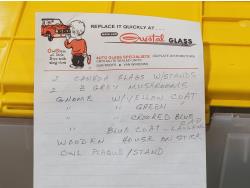 REPLACE IT QUICKLY AT...
Crystal
GLASS
AUTO GLASS SPECIALISTS
2 CANADA FLAGS W/STANDS
2 GREY MUSHROOMS
GNOME W/YELLOW COAT
" " GREEN
" " CROOKED BLUE
" BLUE COAT -
WOODEN HOUSE ON STICK
OWL PLAQUE/STAND